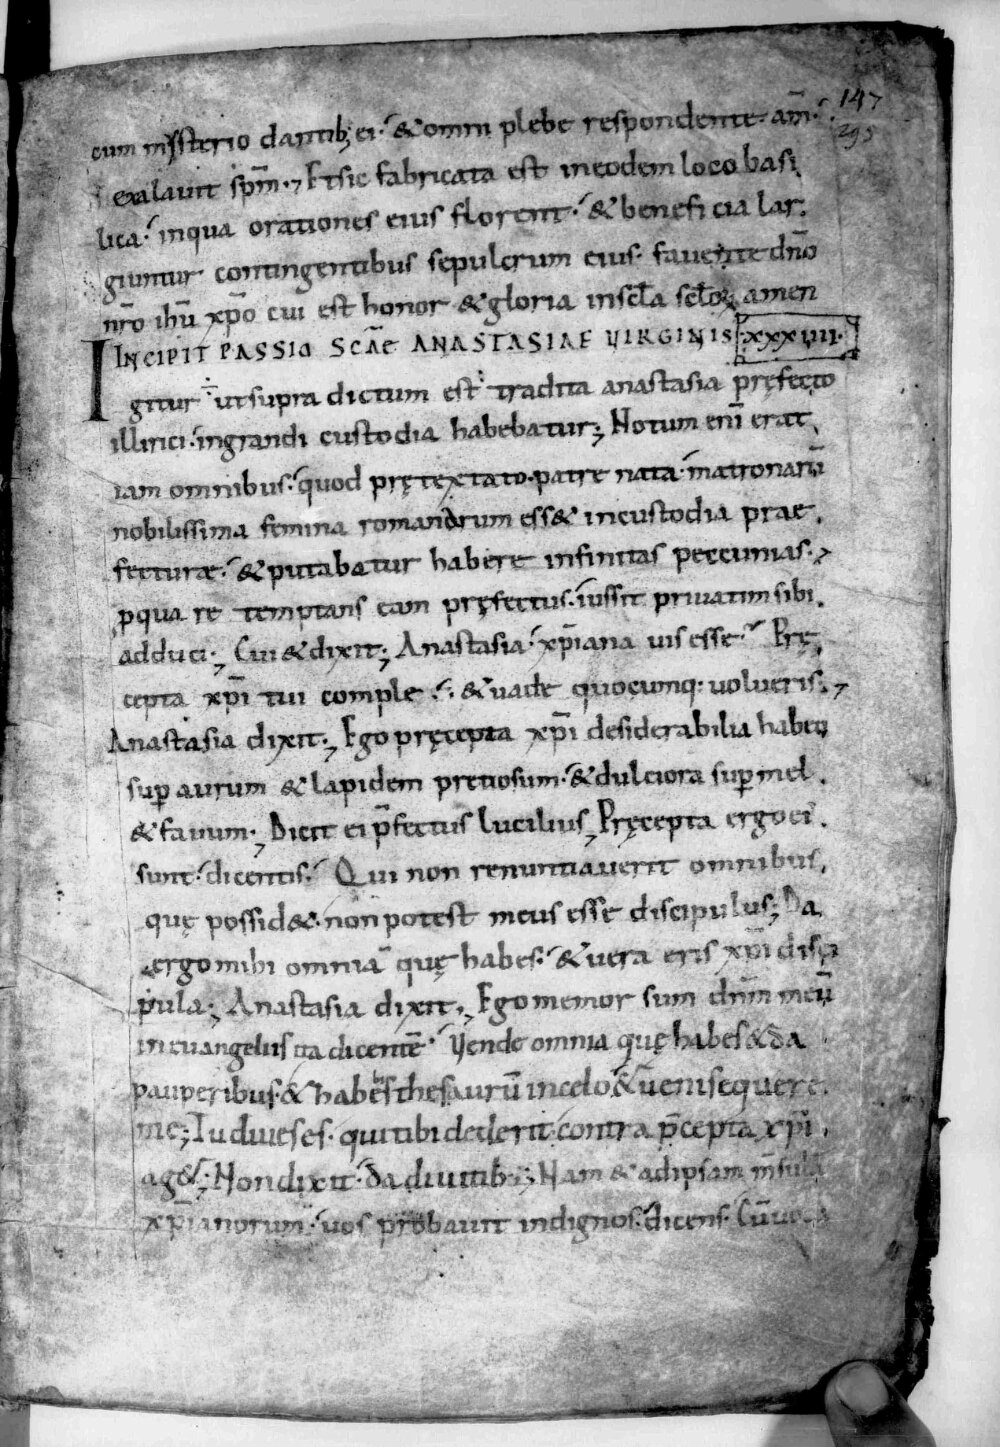 147
295
cum mysterio dantib; ei. & omni plebe respondente. am̄.
exalauit sp̄m. Et sic fabricata est in eodem loco basi
lica. in qua orationes eius florent. & beneficia lar
giuntur contingentibus sepulcrum eius. fauente dn̄o
nr̄o ih̄u xp̄o cui est honor & gloria in scl̄a scl̄oꝝ amen
INCIPIT PASSIO SC̄AE ANASTASIAE VIRGINIS .XXXIIII.
Igitur ut supra dictum est. tradita anastasia pręfecto
illirici. in grandi custodia habebatur; Notum eni᷈ erat
iam omnibus. quod prętextato. patre nata. matronarū
nobilissima femina romanorum ess& in custodia prae
fecturae. & putabatur habere infinitas peccunias.
ꝓqua re temptans eam pręfectus. iussit priuatim sibi
adduci; Cui & dixit; Anastasia. xp̄iana uis esse. Prę
cepta xp̄i tui comple. & uade quocumq: uolueris.
Anastasia dixit; Ego pręcepta xp̄i desiderabilia habeo
suꝑ aurum & lapidem pretiosum. & dulciora suꝑ mel
& fauum; Dicit ei p̄fectus lucilius, Pręcepta ergo ei
sunt. dicentis. Qui non renuntiauerit omnibus
quę possid&. non potest meus esse discipulus; Da
ergo mihi omnia quę habes. & uera eris xp̄i disci
pula; Anastasia dixit; Ego memor sum dn̄m meū
in euangeliis ita dicentē. Vende omnia quę habes & da
pauperibus. & habebis thesaurū in celo & ueni sequere
me; Tu diues es. qui tibi dederit contra p̄cepta xp̄i
ag&; Non dixit. da diuitib;; Nam & ad ipsam
xp̄ianorum. uos probauit indignos. dicens.